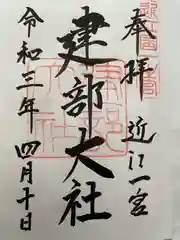 奉拝
近江一宮
建部大社
令和三年四月十日